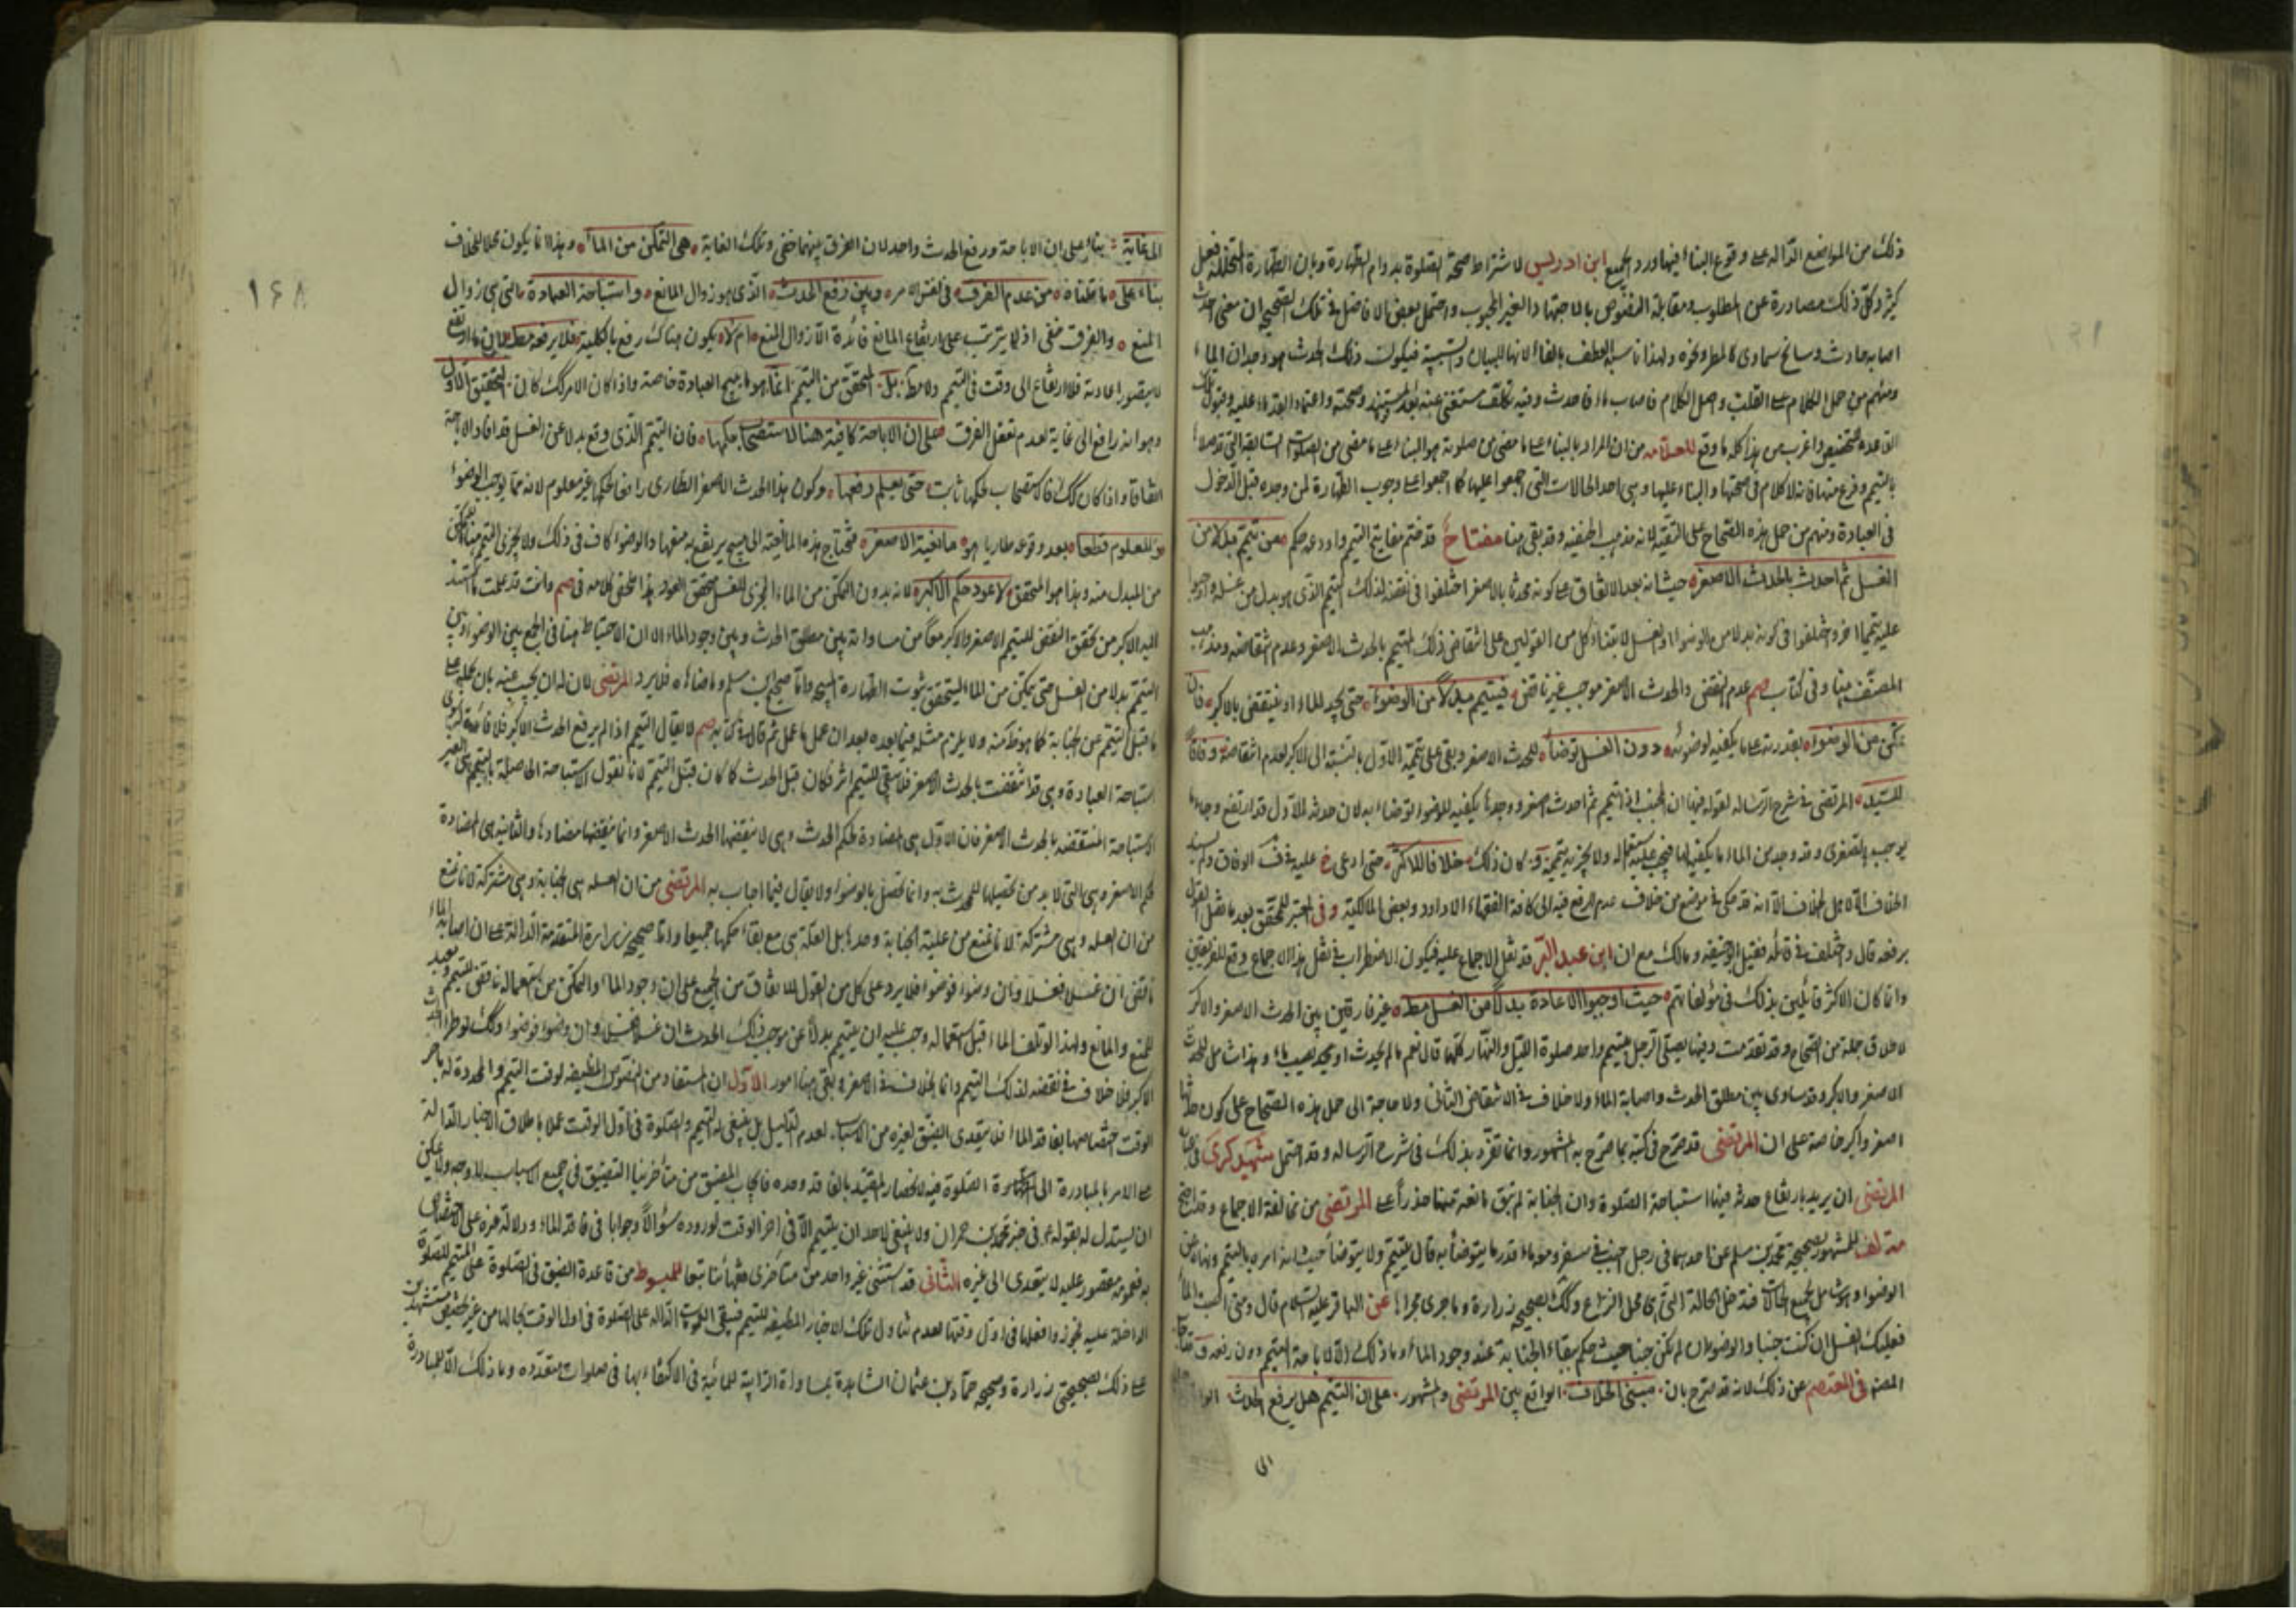 ذلك من المواضع الدالة على وقوع البناء فيها ورد الجميع ابن ادريس لاشتراط صحة الصلوة بدوام الطهارة وبان الطهارة المتخللة فعل
كثير وكل ذلك مصادرة عن المطلوب ومقابلة النصوص بالاجتهاد الغير المحبوب واحتمل بعض الافاضل في تلك الصحيح ان معنى احدث
اصابه حادث وسانح سماوى كالمطر ونحوه ولهذا ناسبه العطف بالفاء لانها للبيان والسببية فيكون ذلك الحدث هو وجدان الماء
ومنهم من حمل الكلام على القلب واصل الكلام فاصاب ماء فاحدث وفيه تكلف مستغنى عنه بعد
واغرب من هذا كله ما وقع للعلامه من ان المراد بالبناء على ما مضى من صلوته هو البناء على ما مضى من الصلوات السابقة التي قد صلاها
بالتيمم وفرغ منها فانه لا كلام في صحتها والبناء عليها وهى احد الحالات التي اجمعوا عليها كما اجمعوا على وجوب الطهارة لمن وجده قبل الدخول
في العبادة ومنهم من حمل هذه الصحاح على التقية لانه مذهب الحنفيه وقد بقى هنا مفتاح قد ختم مفاتيح التيمم واودعه حكم من تيمم بدلا من
الغسل ثم احدث بالحدث الاصغر حيث انه بعد الاتفاق على كونه محدثا بالاصغر اختلفوا في نقضه لذلك التيمم الذى هو بدل من غسله واوجبوا
عليه تيمما اخر واختلفوا في كونه بدلا من الوضوء او الغسل لابتناء كل من القولين على انتقاض ذلك التيمم بالحدث الاصغر وعدم انتقاضه ومذهب
المصنف هنا وفى كتاب صم عدم النقض والحدث الاصغر موجب غير ناقض فيتيمم بدلا من الوضوء حتى يجد الماء او ينتقض بالاكبر فان
تمكن من الوضوء بقدرته على ما يكفيه لوضوئه دون الغسل توضأ للحدث الاصغر وبقى على تيممه الاول بالنسبة الى الاكبر لعدم انتقاضه وفاقا
للسيد المرتضى في شرح الرساله لقوله فيها ان الجنب اذا تيمم ثم احدث اصغر ووجد ما يكفيه للوضوء توضا به لان حدثه الاول قد ارتفع وجاء ما
يوجب الصغرى وقد وجد من الماء ما يكفيه لها فيجب عليه استعماله ولا يجزيه تيممه وكان ذلك خلافا للاكثر حتى ادعى خ عليه في ف الوفاق ولم يسند
الخلاف الا لاهل الخلاف الا انه قد حكى في موضع من خلاف عدم الرفع فيه الى كافة الفقهاء الا داود وبعض المالكية وفى المعتبر للمحقق بعد ما نقل القول
برفعه قال واختلف في قائله فقيل ابو حنيفه ومالك مع ان ابن عبد البر قد نقل الاجماع عليه فيكون الاضطراب في نقل هذا الاجماع وقع للفريقين
وانما كان الاكثر قائلين بذلك في مؤلفاتهم حيث اوجبوا الاعادة بدلا من الغسل مط غير فارقين بين الحدث الاصغر والاكبر
لاطلاق جملة من الصحاح وقد تقدمت وفيها يصلى الرجل بتيمم واحد صلوة الليل والنهار كلها قال نعم ما لم يحدث او يجد يصيب ماء وهذا شامل للحدث
الاصغر والاكبر وقد ساوى بين مطلق الحدث واصابة الماء ولا خلاف في الانتقاض الثانى ولا حاجة الى حمل هذه الصحاح على كون حدثا
اصغر واكبر خاصة على ان المرتضى قد صرح في كتبه بما صرح به المشهور وانما تفرد بذلك في شرح الرساله وقد احتمل شهيد كرى في
المرتضى ان يريد بارتفاع حدثه فيها استباحة الصلوة وان الجنابة لم تبق مانعه منها حذرا على المرتضى من مخالفة الاجماع
للمشهور بصحيحة محمد بن مسلم عن احدهما في رجل اجنب في سفر ومعه ماء قدر ما يتوضأ به قال يتيمم ولا يتوضأ حيث انه امره بالتيمم ونهاه عن
الوضوء وهو شامل لجميع الحالات فتدخل الحالة التي هي محل النزاع وكك بصحيحة زرارة وما جرى مجراها عن الباقر عليه السلام قال ومتى اصبت الماء
فعليك الغسل ان كنت جنبا والوضوء ان لم تكن جنبا حيث حكم ببقاء الجنابة عند وجود الماء وما ذلك الا لاباحة التيمم دون رفعه
المصنف في المعتصم عن ذلك لانه قد صرح بان مبنى الخلاف الواقع بين المرتضى والمشهور على ان التيمم هل يرفع الحدث
الى
١٦٨
الى غاية بناء على ان الاباحة ورفع الحدث واحد لان الفرق بينهما خفى وتلك الغاية هى التمكن من الماء وهذا انما يكون محلا للخلاف
بناء على ما نقلناه من عدم الفرق في نفس الامر وبين رفع الحدث الذى هو زوال المانع واستباحة العبادة التي هي زوال
المنع والفرق خفى اذ لا يترتب على ارتفاع المانع فائدة الا زوال المنع ام لا يكون هناك رفع بالكلية فلا يرفعه مط
لا يتصور اعادته فلا ارتفاع الى وقت في التيمم ولا مط بل المحقق من التيمم انما هو ما يبيح العبادة خاصة واذا كان الامر كك كان التحقيق الاول
وهو انه رافع الى غاية لعدم تعقل الفرق على ان الاباحة كافية هنا لاستصحاب حكمها فان التيمم الذى وقع بدلا عن الغسل قد افاد الاباحة
اتفاقا واذا كان كك فاستصحاب حكمها ثابت حتى يعلم رفعها وكون هذا الحدث الاصغر الطارى رافعا لحكمها غير معلوم لانه مما يوجب الوضوء
من المعلوم قطعا بعد وقوعه طاريا هو مانعية الاصغر فتحتاج هذه المانعية الى مبيح يرتفع به منعها والوضوء كاف في ذلك ولا يجزى التيمم هنا
من المبدل منه وهذا هو المتحقق لا عود حكم الاكبر لانه بدون التمكن من الماء المجزى للغسل يتحقق العود هذا ملخص كلامه في صم وانت قد علمت ما استند
اليه الاكثر من تحقق النقض للتيمم الاصغر والاكبر معا من مساواته بين مطلق الحدث وبين وجود الماء الا ان الاحتياط هنا في الجمع بين الوضوء وبين
التيمم بدلا من الغسل حتى يتمكن من الماء ليتحقق ثبوت الطهارة المبيحة واما صحيح ابن مسلم وما ضاهاه فلا يرد المرتضى لان له ان يجيب عنه بان محله على
ما قبل التيمم عن الجنابة كما هو ظاهره ولا يلزم مثله فيما بعده بعد ان عمل ما عمل ثم قال في كتابه صم لا يقال التيمم اذا لم يرفع الحدث الاكبر فلا فائدة له سوى
استباحة العبادة وهى قد انتقضت بالحدث الاصغر فلا يبقى للتيمم اثر فكان قبل الحدث كما كان قبل التيمم لانا نقول الاستباحة الحاصلة بالتيمم هى الغير
الاستباحة المنتقضه بالحدث الاصغر فان الاول هى المضادة لحكم الحدث وهى لا ينقضها الحدث الاصغر وانما ينقضها مضادها والثانيه هى المضادة
لحكم الاصغر وهى التي لا بد من تحصيلها للمحدث به وانما تحصل بالوضوء ولا يقال فيما اجاب به المرتضى من ان العلة هى الجنابة وهى مشتركة لانا نمنع
من ان العلة وهى مشتركة لانا نمنع من علية الجنابة وحدها بل العلة هى مع بقاء حكمها جميعا واما صحيح زرارة المتقدمة الدالة على ان اصابة الماء
ناقض ان غسلا فغسلا وان وضوء فوضوء فلا يرد على كل من القول للاتفاق من الجميع على ان وجود الماء والتمكن من استعماله ناقض للتيمم
للمنع والمانع ولهذا لو تلف الماء قبل استعماله وجب عليه ان يتيمم بدلا عن موجب ذلك الحدث ان غسلا فغسل وان وضوء فوضوء وكك لو طرأ الحدث
الاكبر فلا خلاف في نقضه لذلك التيمم وانما الخلاف في الاصغر وبقى هنا امور الاول ان المستفاد من النصوص المضيقه لوقت التيمم والمحددة له باخر
الوقت اختصاصها بفاقد الماء فلا يتعدى الضيق لغيره من الاسباب لعدم الدليل بل ينبغى له التيمم والصلوة في اول الوقت عملا باطلاق الاخبار الدالة
على الامر بالمبادرة الى الصلوة فيه لانحصار المقيد بالفاقد وحده فايجاب الضيق من متأخرينا التضييق في جميع الاسباب لا وجه له ولا يمكن
ان يستدل له بقوله ع في خبر محمد بن حمران ولا ينبغي لاحد ان يتيمم الا في اخر الوقت لوروده سؤالا وجوابا في فاقد الماء ودلالة غيره على الاختصاص
به فعمومه مقصور عليه لا يتعدى الى غيره الثانى قد استثنى غير واحد من متأخرى فقهائنا تبعا للمبسوط من قاعدة الضيق في الصلوة على المتيمم للصلوة
الداخلة عليه فجوز وافعلها في اول وقتها لعدم تناول تلك الاخبار المضيقه للتيمم فتبقى الدالة على الصلوة في اول الوقت بحالها من غير تخصيص مستشهدين
على ذلك بصحيحتي زرارة وصحيح حماد بن عثمان الشاهدة بمساواة الترابية للمائية في الاكتفاء بها في صلوات متعدده وما ذلك الا للمبادرة